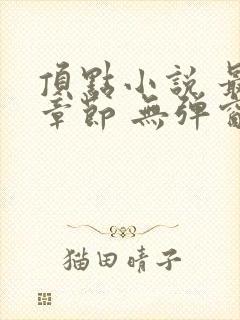 頂點小說
章節 無彈
猫田晴子